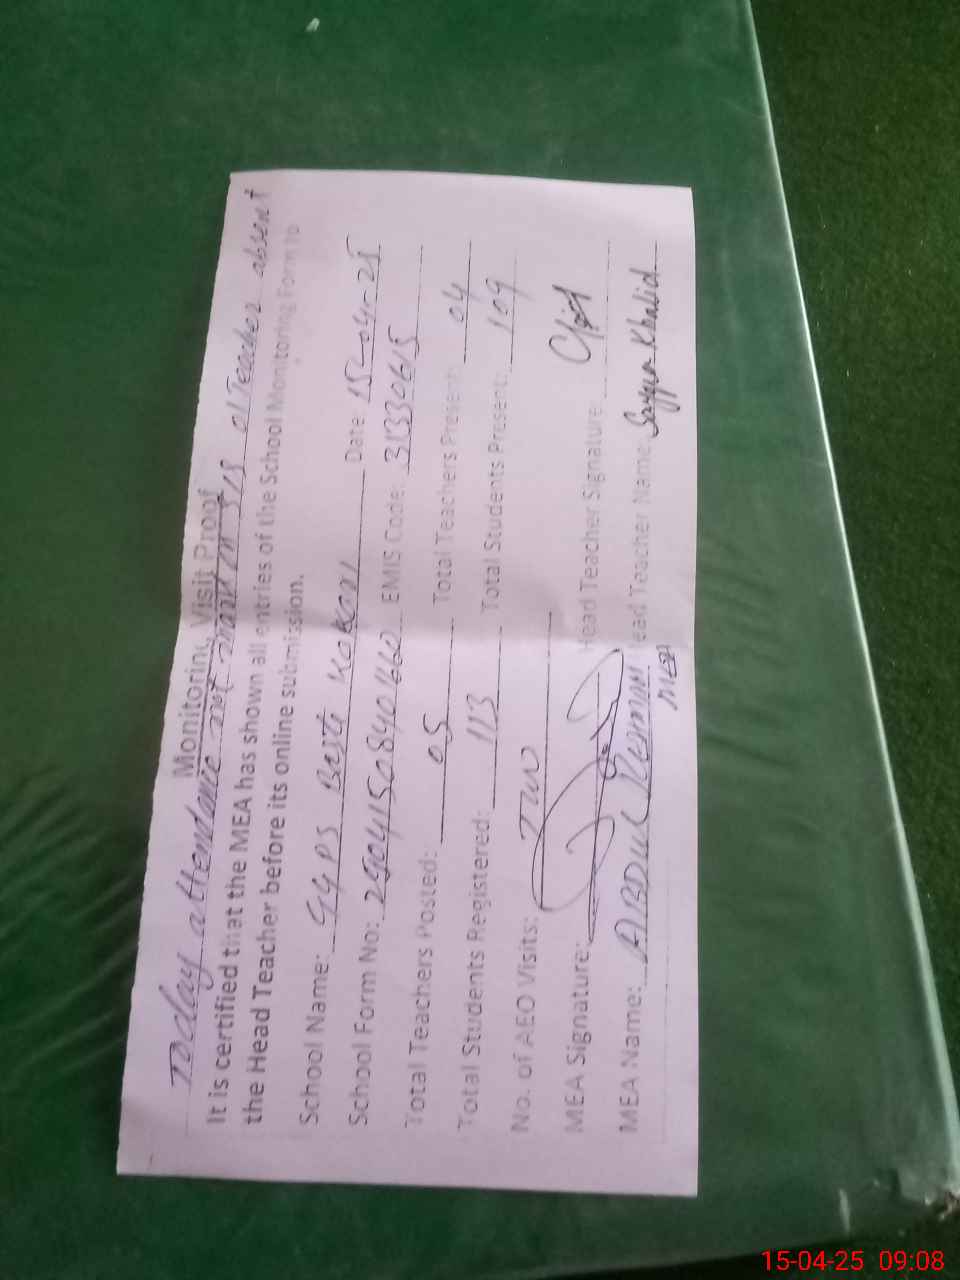 Monitoring Visit Proof
Today attendance not mark on SIS 01 Teacher absent
It is certified that the MEA has shown all entries of the School Monitoring Form to
the Head Teacher before its online submission.
School Name: GGPS Basti Date: 15-04-25
School Form No: EMIS Code: 31330615
Total Teachers Posted: 05 Total Teachers Present: 04
Total Students Registered: 113 Total Students Present: 109
No. of AEO Visits: Two
MEA Signature: Head Teacher Signature:
MEA Name: ABDUL Rehman MEA Head Teacher Name: Khalid
15-04-25 09:08